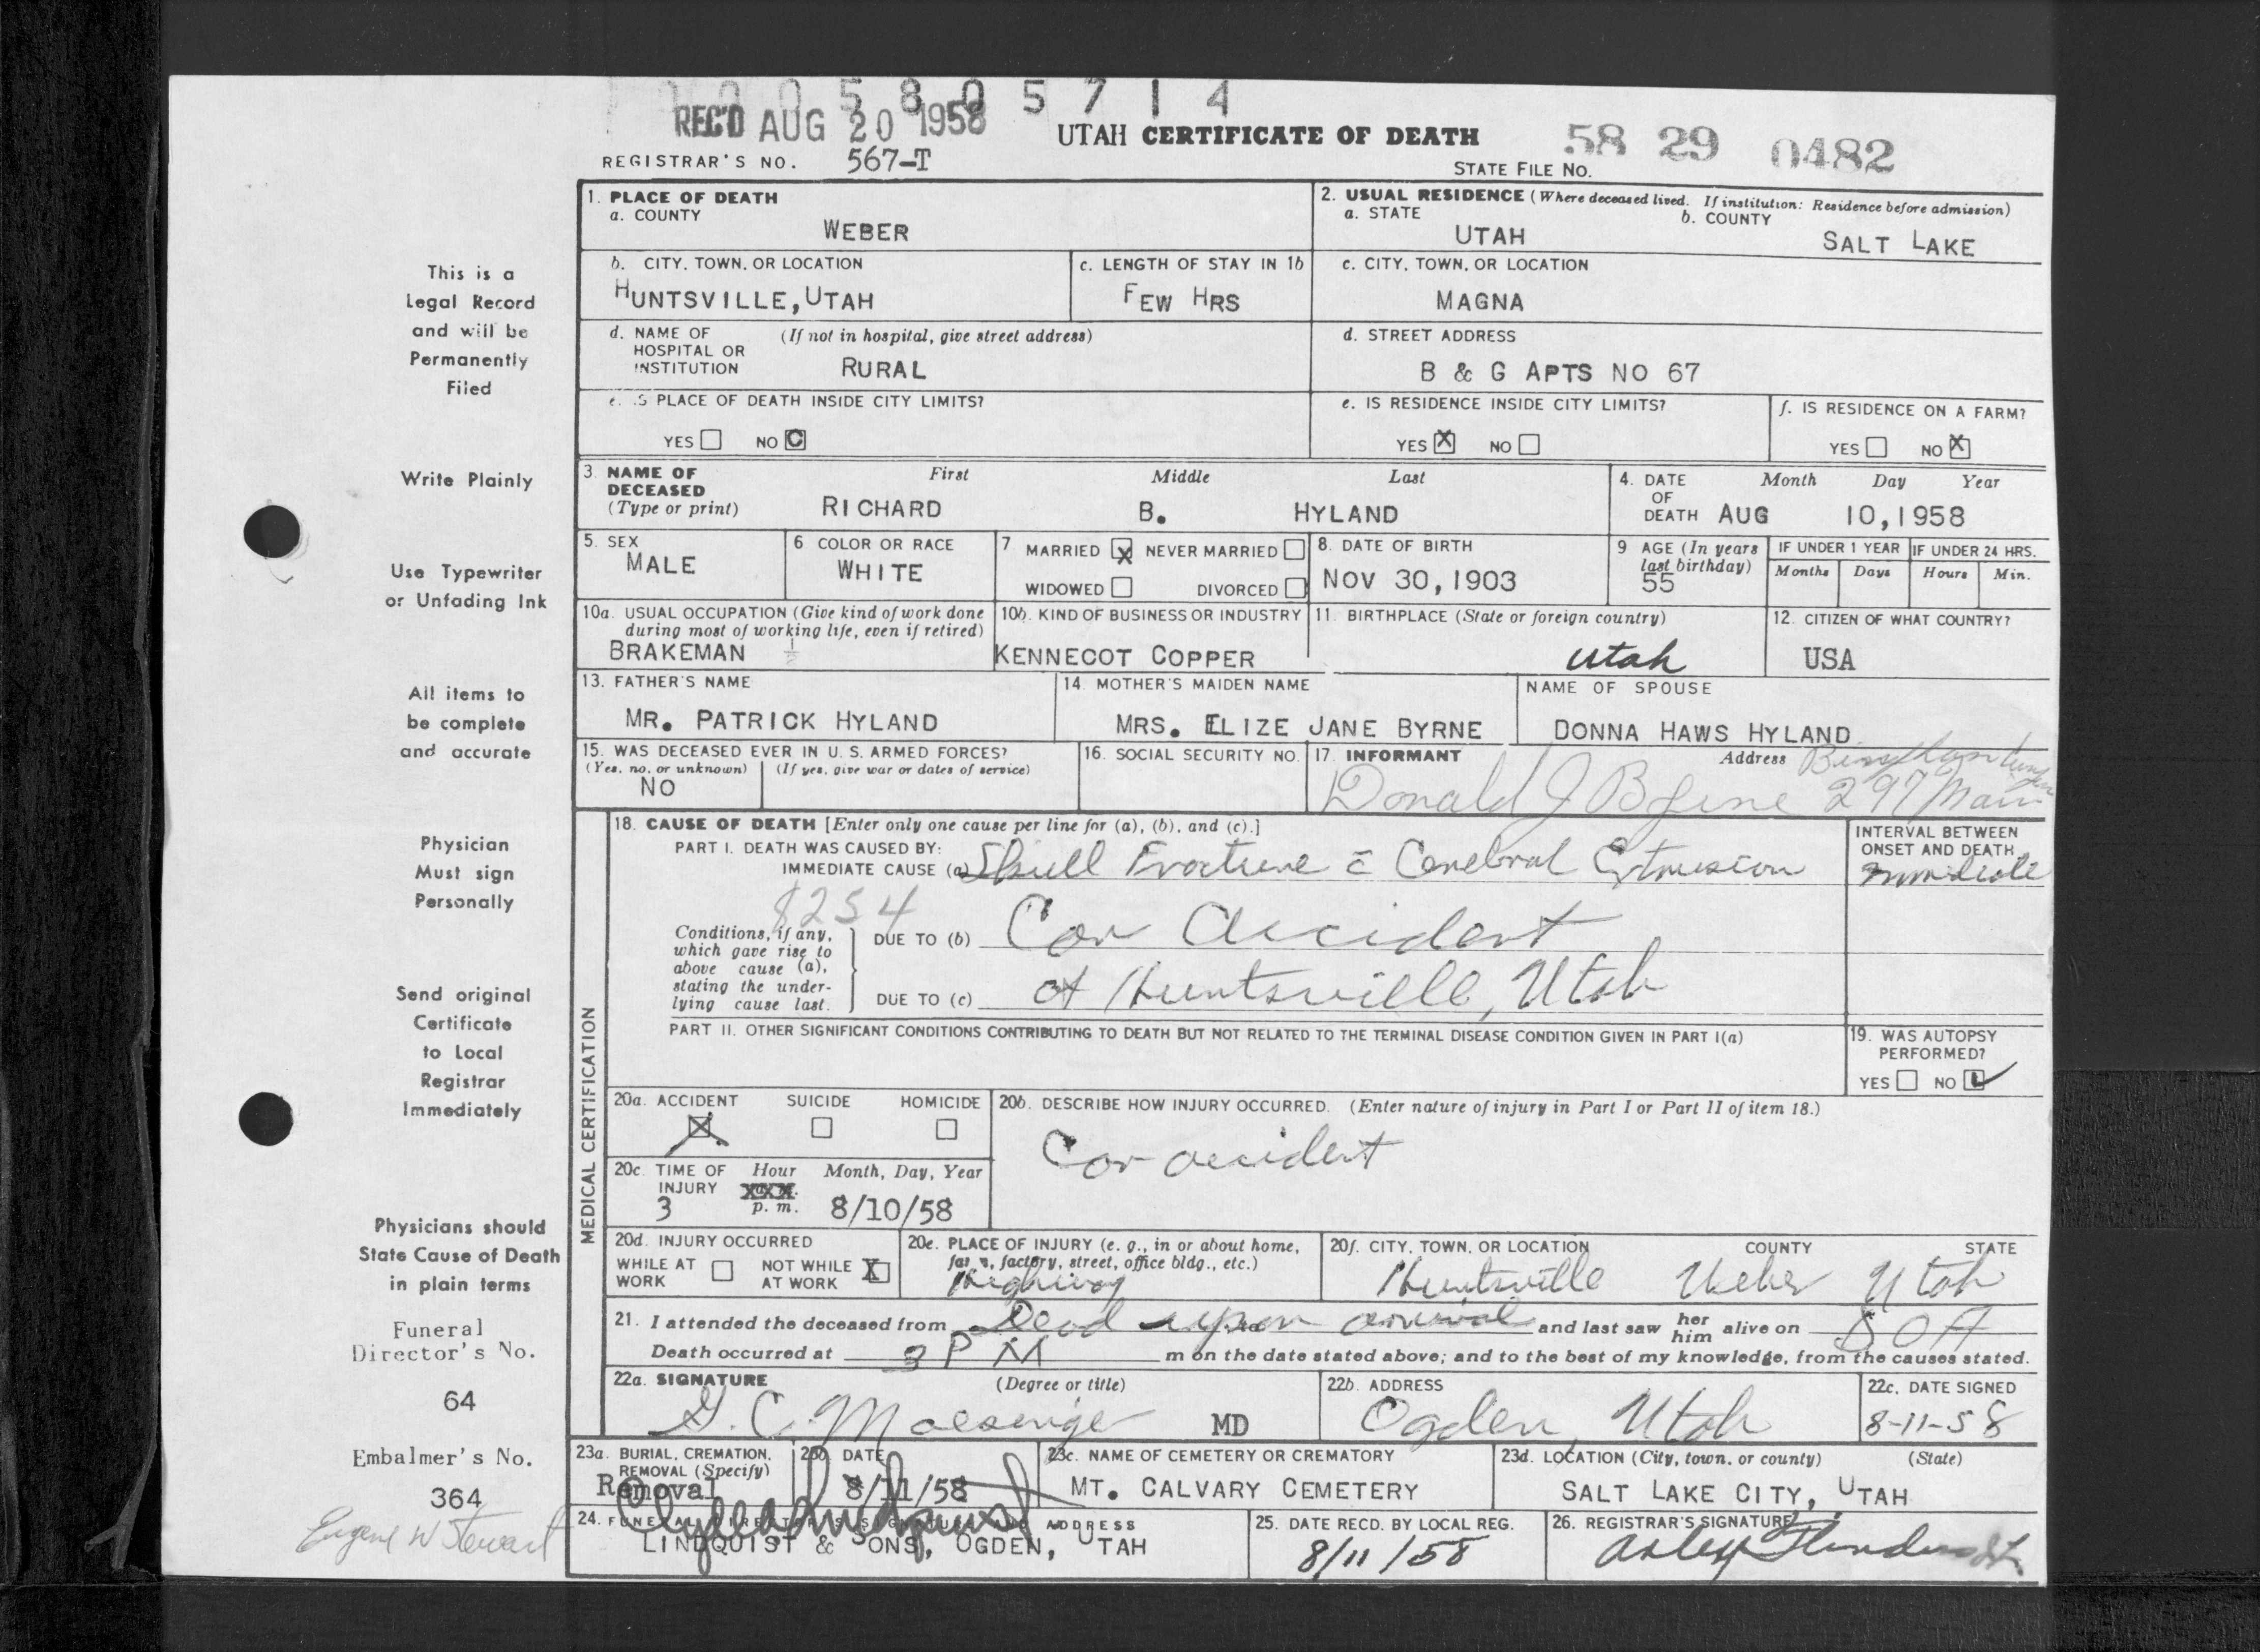 0 0 5 8 0 5 7 1 4
REC'D AUG 20 1958
UTAH CERTIFICATE OF DEATH
58 29 0482
REGISTRAR'S NO. 567-T
STATE FILE NO.
This is a
Legal Record
and will be
Permanently
Filed
Write Plainly
Use Typewriter
or Unfading Ink
All items to
be complete
and accurate
Physician
Must sign
Personally
Send original
Certificate
to Local
Registrar
Immediately
Physicians should
State Cause of Death
in plain terms
Funeral
Director's No.
64
Embalmer's No.
364
Eugene W Stewart
1. PLACE OF DEATH
a. COUNTY
WEBER
2. USUAL RESIDENCE (Where deceased lived. If institution: Residence before admission)
a. STATE
UTAH
b. COUNTY
SALT LAKE
b. CITY, TOWN, OR LOCATION
HUNTSVILLE, UTAH
c. LENGTH OF STAY IN 1b
FEW HRS
c. CITY, TOWN, OR LOCATION
MAGNA
d. NAME OF (If not in hospital, give street address)
HOSPITAL OR
INSTITUTION RURAL
d. STREET ADDRESS
B & G APTS NO 67
e. IS PLACE OF DEATH INSIDE CITY LIMITS?
YES NO
e. IS RESIDENCE INSIDE CITY LIMITS?
YES X NO
f. IS RESIDENCE ON A FARM?
YES NO X
3. NAME OF DECEASED
(Type or print)
First Middle Last
RICHARD B. HYLAND
4. DATE OF DEATH
Month Day Year
AUG 10, 1958
5. SEX
MALE
6 COLOR OR RACE
WHITE
7 MARRIED X NEVER MARRIED
WIDOWED DIVORCED
8. DATE OF BIRTH
NOV 30, 1903
9 AGE (In years
last birthday)
55
IF UNDER 1 YEAR
Months Days
IF UNDER 24 HRS.
Hours Min.
10a. USUAL OCCUPATION (Give kind of work done
during most of working life, even if retired)
BRAKEMAN
10b. KIND OF BUSINESS OR INDUSTRY
KENNECOT COPPER
11. BIRTHPLACE (State or foreign country)
Utah
12. CITIZEN OF WHAT COUNTRY?
USA
13. FATHER'S NAME
MR. PATRICK HYLAND
14. MOTHER'S MAIDEN NAME
MRS. ELIZE JANE BYRNE
NAME OF SPOUSE
DONNA HAWS HYLAND
15. WAS DECEASED EVER IN U. S. ARMED FORCES?
(Yes, no, or unknown) (If yes, give war or dates of service)
NO
16. SOCIAL SECURITY NO.
17. INFORMANT Address
Donald J 297 Main
MEDICAL CERTIFICATION
18. CAUSE OF DEATH [Enter only one cause per line for (a), (b), and (c).]
PART I. DEATH WAS CAUSED BY:
IMMEDIATE CAUSE (a) Skull Fracture c Cerebral Extrusion
INTERVAL BETWEEN
ONSET AND DEATH
8254
Conditions, if any,
which gave rise to
above cause (a),
stating the under-
lying cause last.
DUE TO (b) Car Accident
DUE TO (c) at Huntsville, Utah
PART II. OTHER SIGNIFICANT CONDITIONS CONTRIBUTING TO DEATH BUT NOT RELATED TO THE TERMINAL DISEASE CONDITION GIVEN IN PART I(a)
19. WAS AUTOPSY
PERFORMED?
YES NO
20a. ACCIDENT SUICIDE HOMICIDE
X
20b. DESCRIBE HOW INJURY OCCURRED. (Enter nature of injury in Part I or Part II of item 18.)
Car accident
20c. TIME OF INJURY
Hour Month, Day, Year
3 p. m. 8/10/58
20d. INJURY OCCURRED
WHILE AT WORK
NOT WHILE AT WORK X
20e. PLACE OF INJURY (e. g., in or about home,
farm, factory, street, office bldg., etc.)
Highway
20f. CITY, TOWN, OR LOCATION COUNTY STATE
Huntsville Weber Utah
21. I attended the deceased from Dead upon arrival and last saw her him alive on DOA
Death occurred at 3 P M m on the date stated above; and to the best of my knowledge, from the causes stated.
22a. SIGNATURE (Degree or title)
MD
22b. ADDRESS
Ogden, Utah
22c. DATE SIGNED
8-11-58
23a. BURIAL, CREMATION,
REMOVAL (Specify)
Removal
23b. DATE
8/11/58
23c. NAME OF CEMETERY OR CREMATORY
MT. CALVARY CEMETERY
23d. LOCATION (City, town, or county) (State)
SALT LAKE CITY, UTAH
24. FUNERAL DIRECTOR'S SIGNATURE AND ADDRESS
LINDQUIST & SONS, OGDEN, UTAH
25. DATE RECD. BY LOCAL REG.
8/11/58
26. REGISTRAR'S SIGNATURE